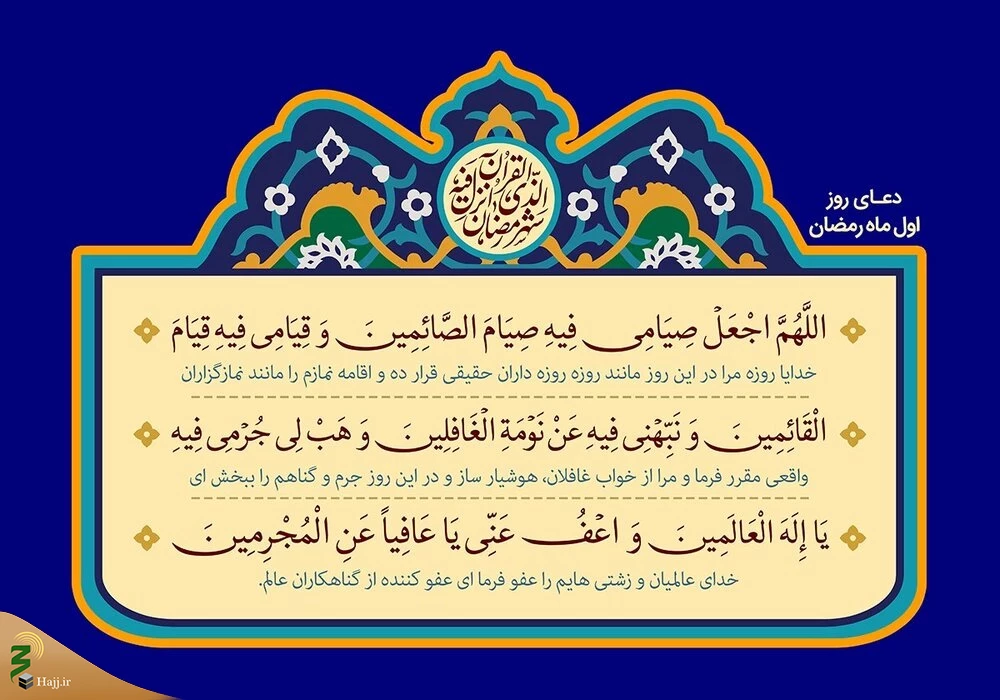 شهر رمضان الذی انزل فیه القرآن
دعـای روز
اول ماه رمضان
اللَّهُمَّ اجْعَلْ صِیَامِی فِیهِ صِیَامَ الصَّائِمِینَ وَ قِیَامِی فِیهِ قِیَامَ
خدایا روزه مرا در این روز مانند روزه روزه داران حقیقی قرار ده و اقامه نمازم را مانند نمازگزاران
الْقَائِمِینَ وَ نَبِّهْنِی فِیهِ عَنْ نَوْمَةِ الْغَافِلِینَ وَ هَبْ لِی جُرْمِی فِیهِ
واقعی مقرر فرما و مرا از خواب غافلان، هوشیار ساز و در این روز جرم و گناهم را ببخش ای
یَا إِلَهَ الْعَالَمِینَ وَ اعْفُ عَنِّی یَا عَافِیاً عَنِ الْمُجْرِمِینَ
خدای عالمیان و زشتی هایم را عفو فرما ای عفو کننده از گناهکاران عالم.
Hajj.ir